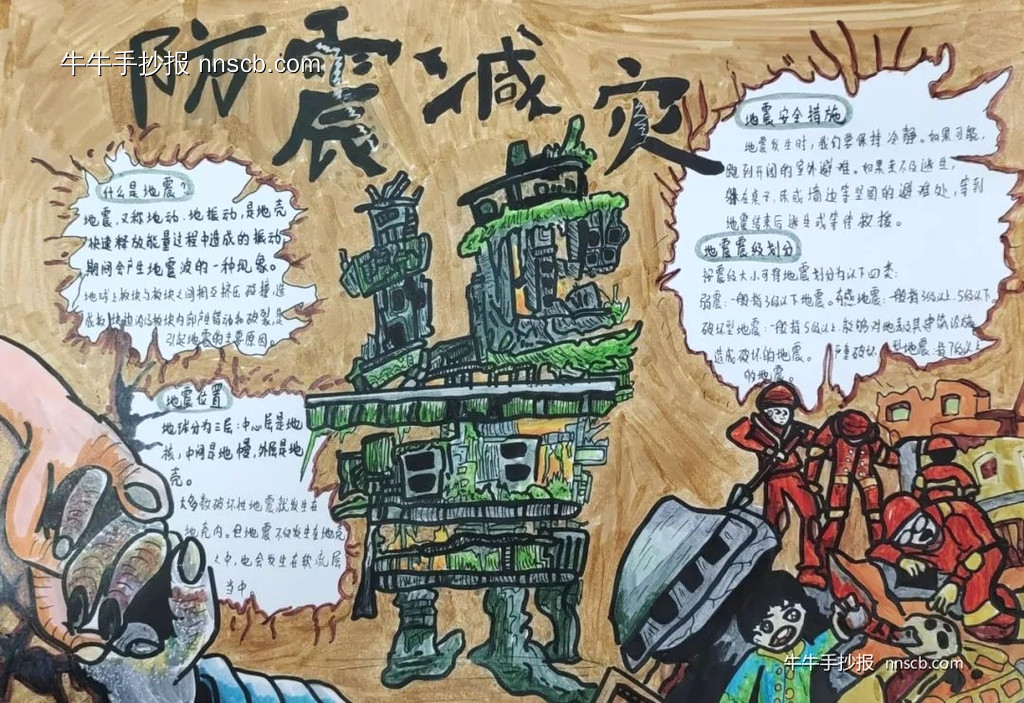 防震减灾
牛牛手抄报 nnscb.com
什么是地震?
地震,又称地动、地振动,是地壳
快速释放能量过程中造成的振动,
期间会产生地震波的一种现象。
地球上板块与板块之间相互挤压碰撞,造
成板块边沿及板块内部产生错动和破裂,是
引起地震的主要原因。
地震位置
地球分为三层:中心层是地
核,中间是地幔,外层是地
壳。
大多数破坏性地震就发生在
地壳内。但地震不仅发生在地壳
之中,也会发生在软流层
当中。
地震安全措施
地震发生时,我们要保持冷静。如果可能,
跑到开阔的室外避难。如果来不及逃生,
在桌子、床或墙边等坚固的避难处,等到
地震结束后逃生或等待救援。
地震震级划分
按震级大小可将地震划分为以下四类:
弱震:一般指3级以下地震。有感地震:一般指3级以上、5级以下。
破坏型地震:一般指5级以上,能够对地表及其建筑设施
造成破坏的地震。严重破坏型地震:指7级以上
的地震。
牛牛手抄报 nnscb.com